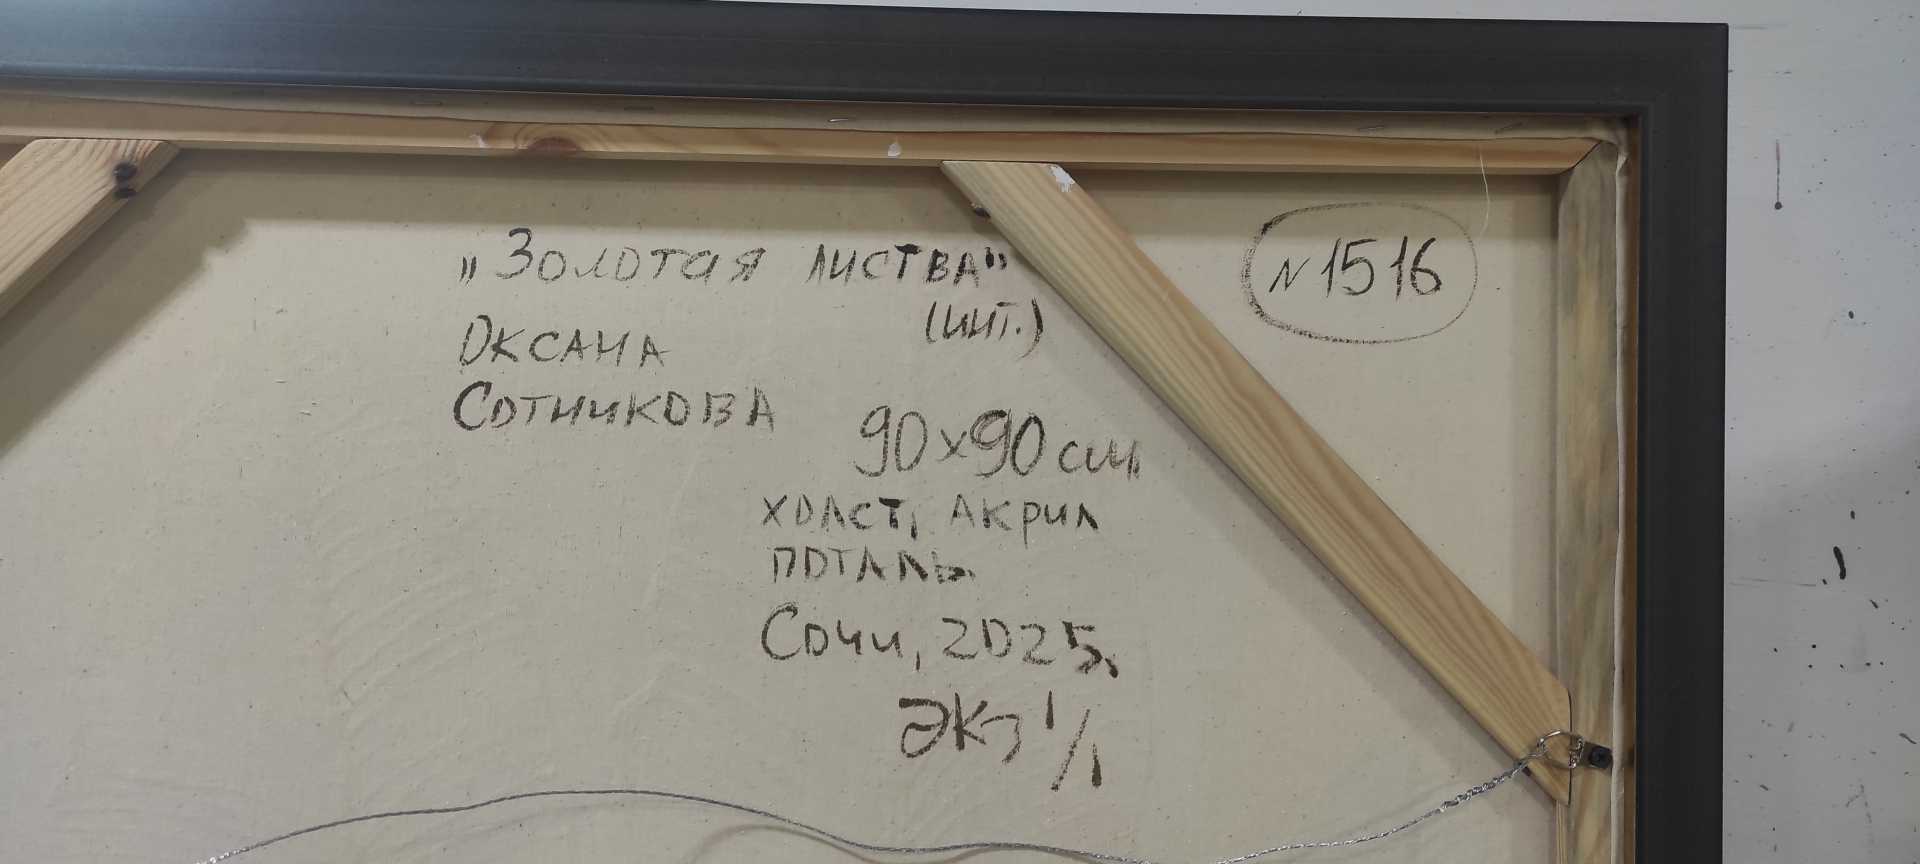 „Золотая листва"
N1516
(инт.)
Оксана
Сотникова
90х90 см.
холст, акрил
поталь.
Сочи, 2025.
Экз 1/1